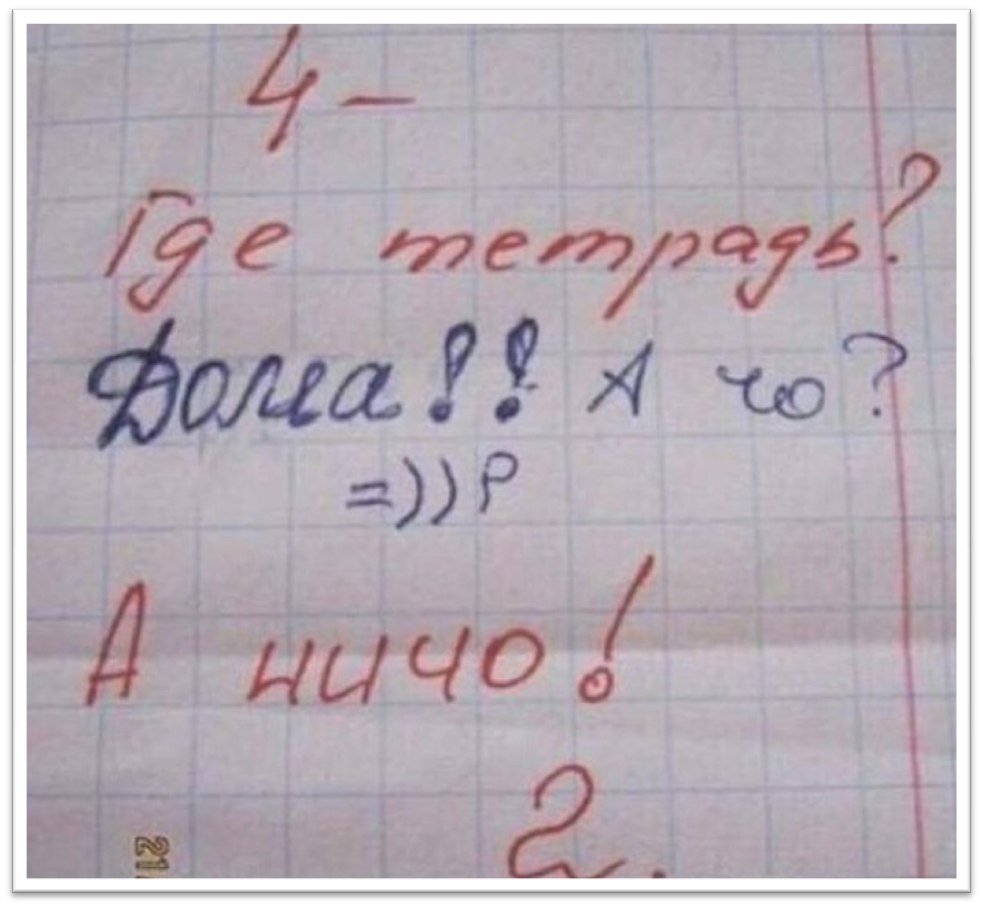 4 –
Где тетрадь?
Дома!! А чо?
=))Р
А ничо!
2.
21